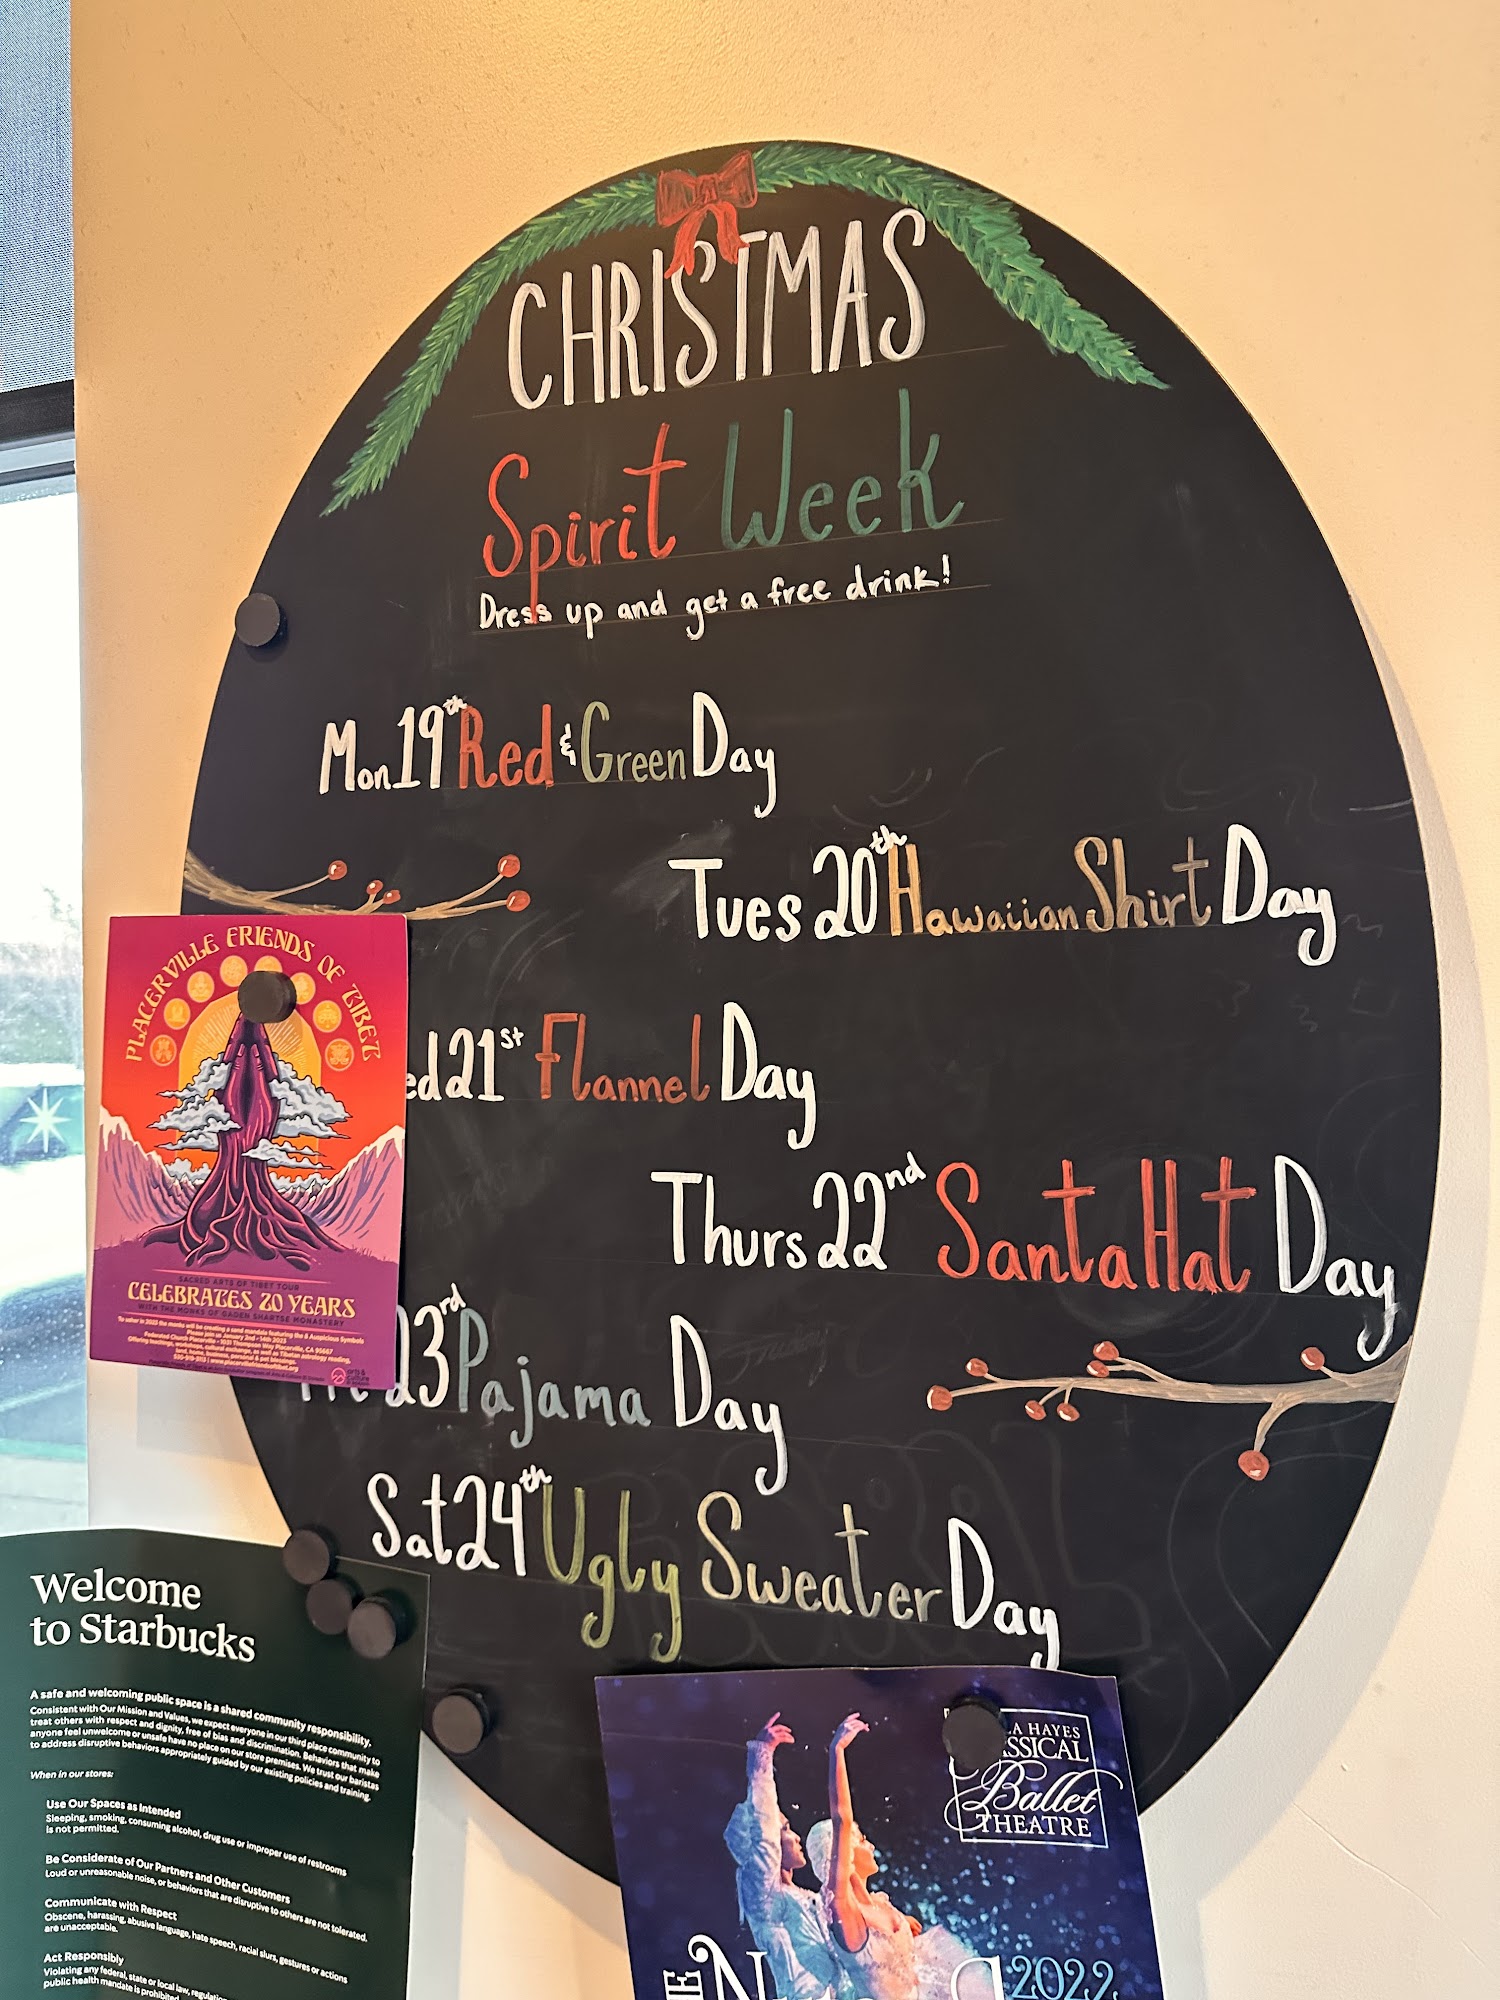 CHRISTMAS
Spirit Week
Dress up and get a free drink!
Mon 19th Red & Green Day
Tues 20th Hawaiian Shirt Day
ed 21st Flannel Day
Thurs 22nd Santa Hat Day
23rd Pajama Day
Sat 24th Ugly Sweater Day
PLACERVILLE FRIENDS OF TIBET
SACRED ARTS OF TIBET TOUR
CELEBRATES 20 YEARS
WITH THE MONKS OF GADEN SHARTSE MONASTERY
To usher in 2023 the monks will be creating a sand mandala featuring the 8 Auspicious Symbols
Please join us January 2nd - 14th 2023
Federated Church Placerville • 1031 Thompson Way Placerville, CA 95667
Offering teachings, workshops, cultural exchange, as well as Tibetan astrology reading,
land, home, business, personal & pet blessings.
Welcome
to Starbucks
A safe and welcoming public space is a shared community responsibility.
Consistent with Our Mission and Values, we expect everyone in our third place community to
treat others with respect and dignity, free of bias and discrimination. Behaviors that make
anyone feel unwelcome or unsafe have no place on our store premises. We trust our baristas
to address disruptive behaviors appropriately guided by our existing policies and training.
When in our stores:
Use Our Spaces as Intended
Sleeping, smoking, consuming alcohol, drug use or improper use of restrooms
is not permitted.
Be Considerate of Our Partners and Other Customers
Loud or unreasonable noise, or behaviors that are disruptive to others are not tolerated.
Communicate with Respect
Obscene, harassing, abusive language, hate speech, racial slurs, gestures or actions
are unacceptable.
Act Responsibly
Violating any federal, state or local law,
public health mandate is prohibited
A HAYES
SSICAL
Ballet
THEATRE
2022